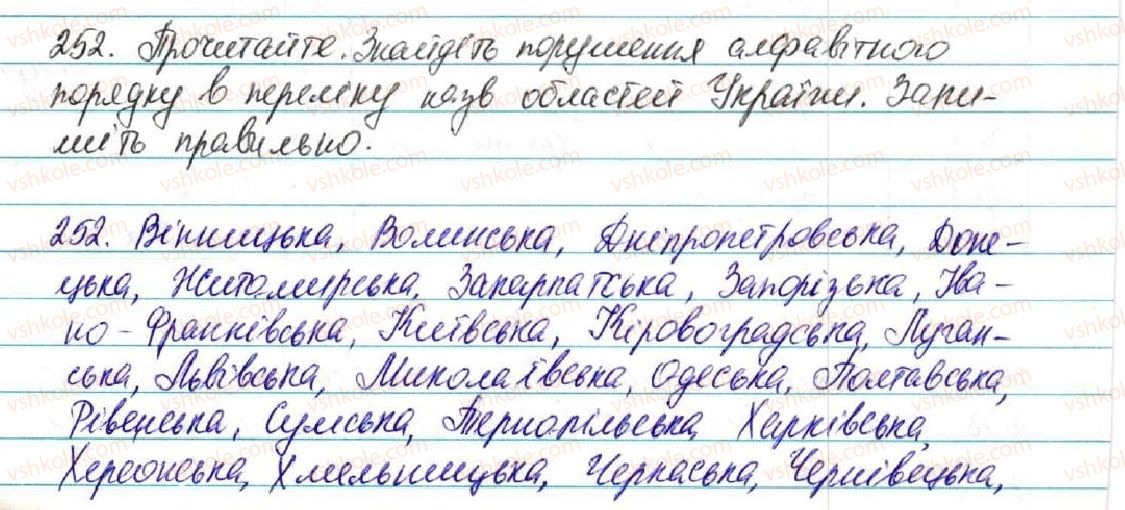 252. Прочитайте. Знайдіть порушення алфавітного
порядку в переліку назв областей України. Запи-
шіть правильно.
252. Вінницька, Волинська, Дніпропетровська, Доне-
цька, Житомирська, Закарпатська, Запорізька, Іва-
но-Франківська, Київська, Кіровоградська, Луган-
ська, Львівська, Миколаївська, Одеська, Полтавська,
Рівенська, Сумська, Тернопільська Харківська,
Херсонська, Хмельницька, Черкаська, Чернівецька,